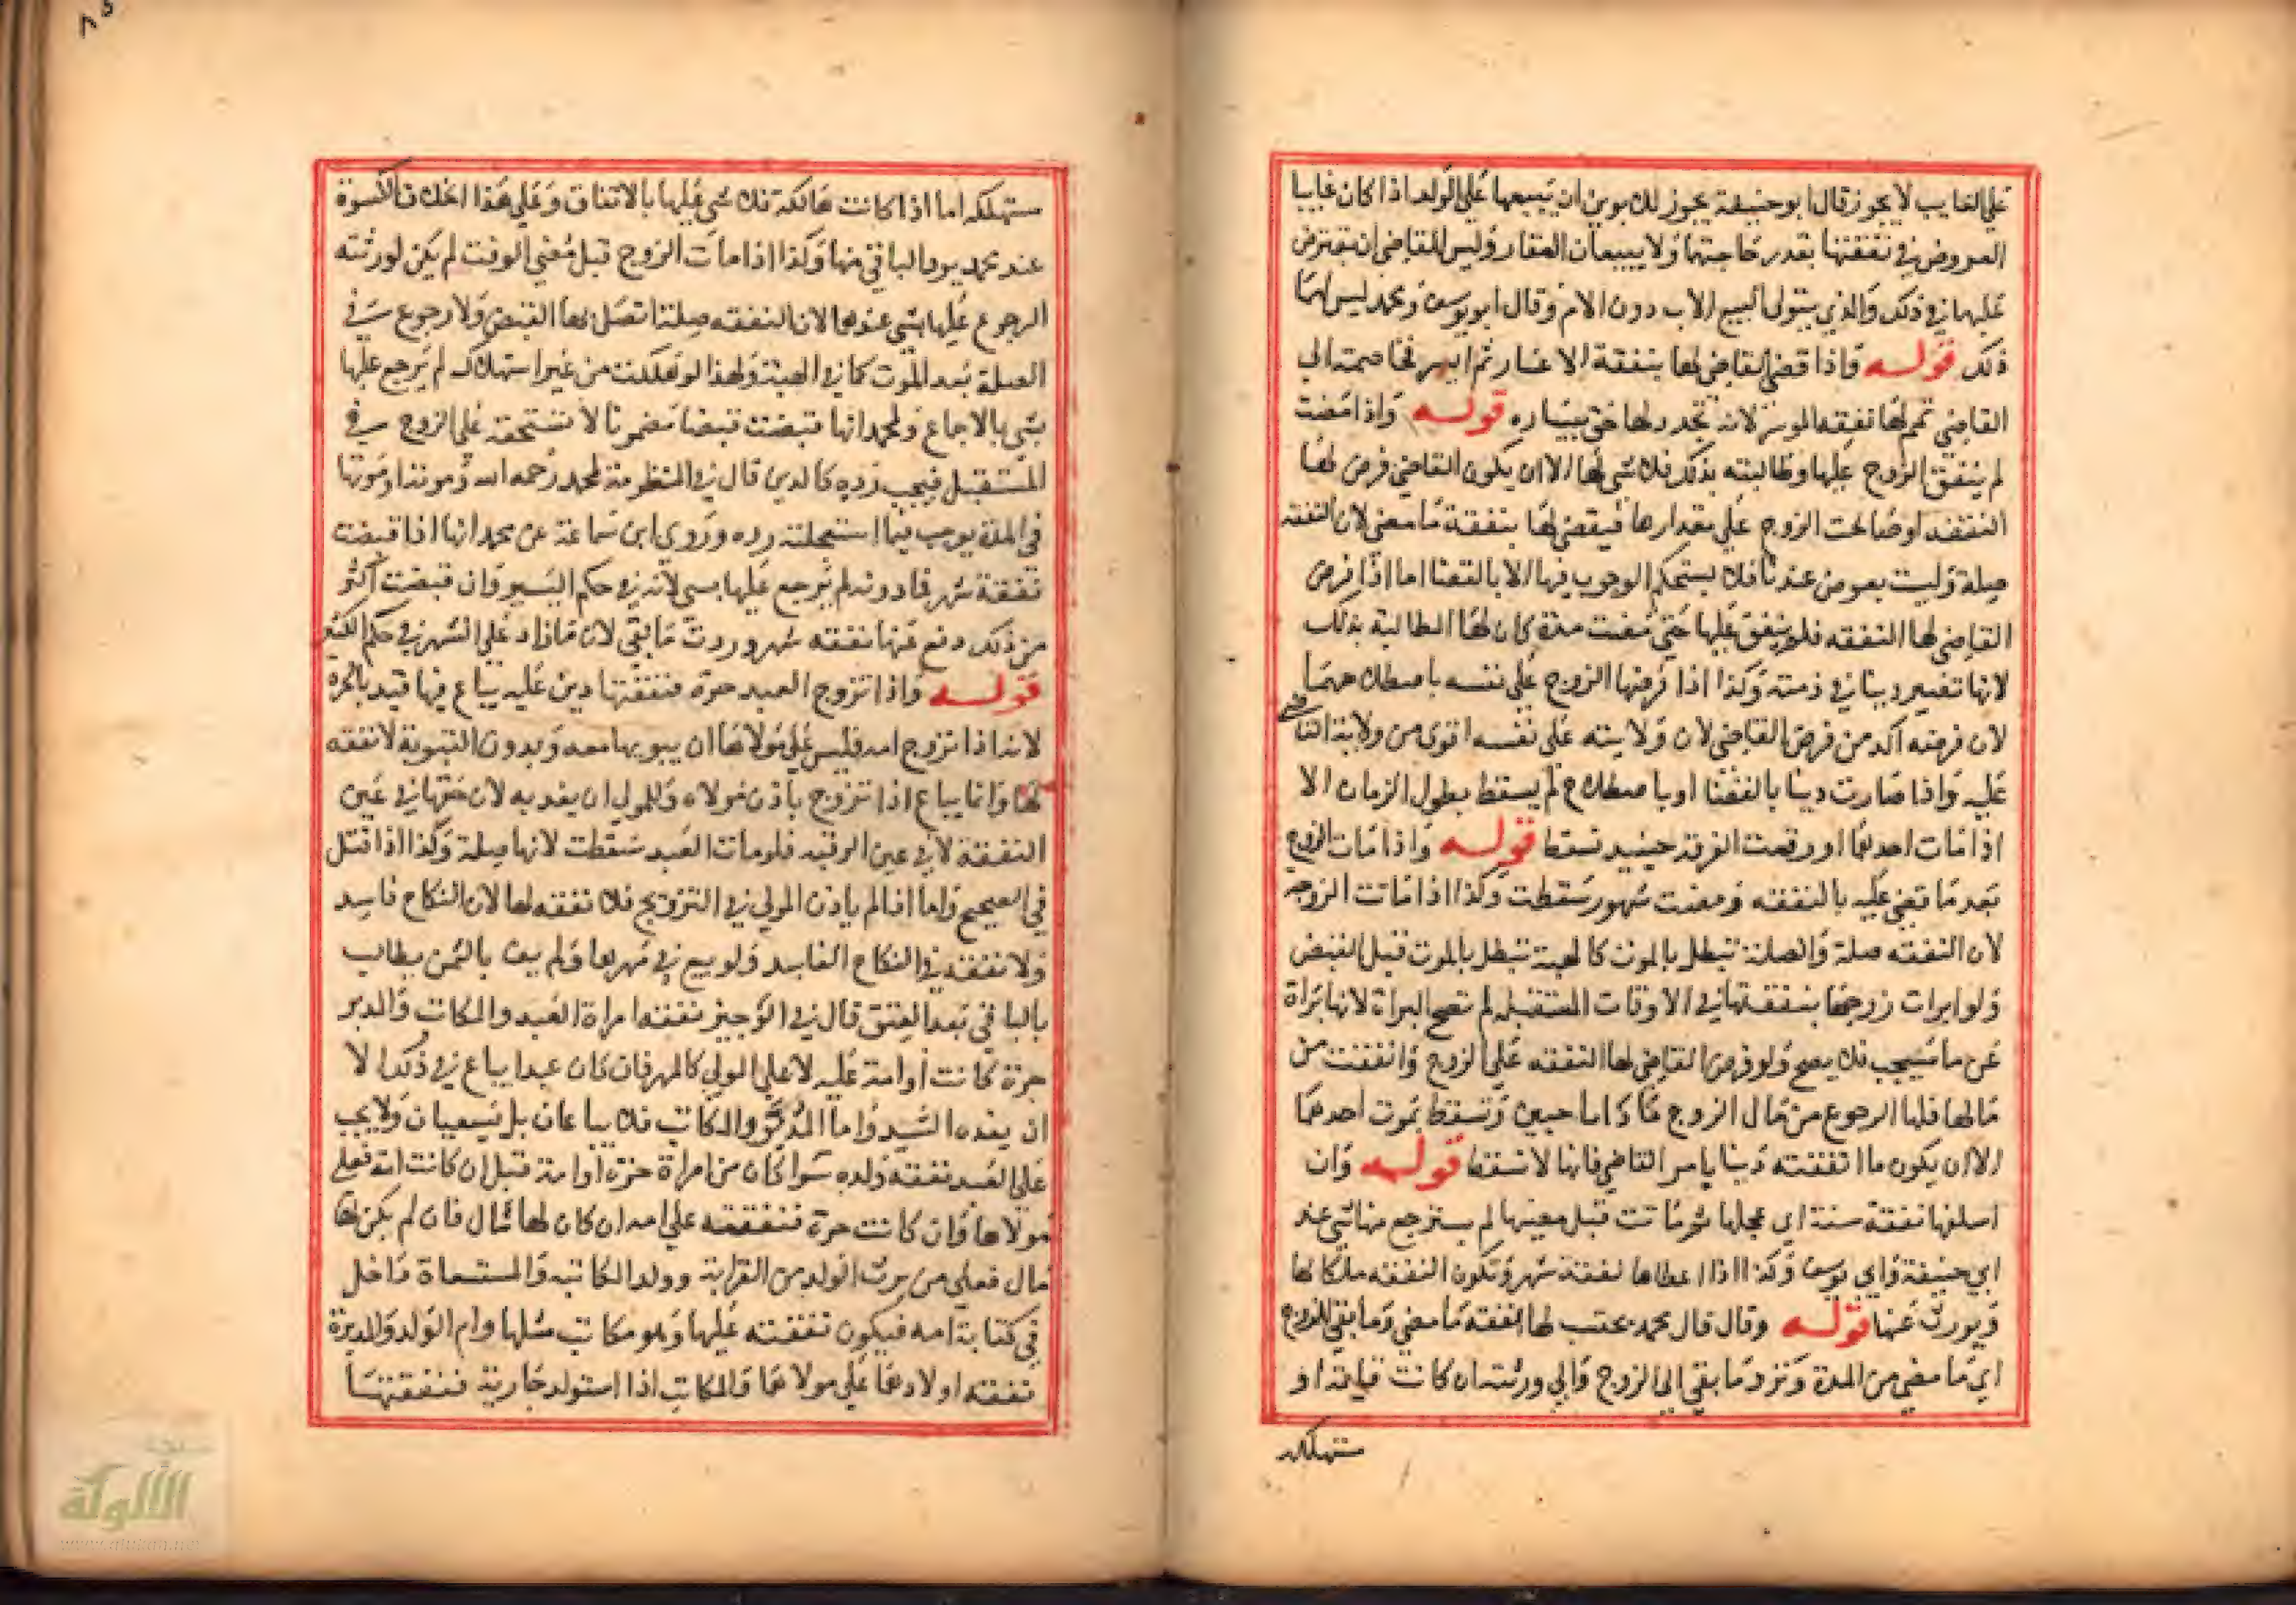 على الغايب لا يجوز قال ابو حنيفة يجوز للابوين ان يبيعها على الولد اذا كان غايبا
العروض في نفقتها بقدر حاجتهما ولا يبيعان العقار وليس للقاضي ان يعترض
عليهما في ذلك والذي يتولى البيع الاب دون الام وقال ابو يوسف ومحمد ليس لهما
ذلك قوله واذا قضى القاضي لها بنفقة الاعسار ثم ايسر فخاصمته الى
القاضي تمم لها نفقه الموسر لانه تجدد لها حق بيساره قوله واذا مضت
لم ينفق الزوج عليها وطالبته بذلك فلا شي لها الا ان يكون القاضي فرض لها
النفقه او صالحت الزوج على مقدارها فيقضى لها بنفقة ما مضى لان النفقه
صلة وليست بعوض عندنا فلا يستحكم الوجوب فيها الا بالقضا اما اذا فرض
القاضي لها النفقه فلم ينفق عليها حتى مضت مدة كان لها المطالبة بذلك
لانها تصير دينا في ذمته وكذا اذا فرضها الزوج على نفسه باصطلاحهما
لان فرضه اكد من فرض القاضي لان ولايته على نفسه اقوى من ولاية القاضي
عليه واذا صارت دينا بالقضا او باصطلاح لم يسقط بطول الزمان الا
اذا مات احدهما او وقعت الفرقة حينيد تسقط قوله واذا مات الزوج
بعد ما قضي عليه بالنفقه ومضت شهور سقطت وكذا اذا ماتت الزوجه
لان النفقه صلة والصلة تبطل بالموت كالهبة تبطل بالموت قبل القبض
ولو ابرات زوجها بنفقتها في الاوقات المستقبله لم تصح البراة لانها براة
عن ما سيجب فلا يصح ولو فرض القاضي لها النفقه على الزوج وانفقت من
مالها فلها الرجوع من مال الزوج ما داما حيين وتسقط بموت احدهما
الا ان يكون ما انفقته دينا بامر القاضي فانها لا تسقط قوله وان
اسلفها نفقة سنة اي عجلها ثم ماتت قبل مضيها لم يسترجع منها شي عند
ابي حنيفة وابي يوسف وكذا اذا اعطاها نفقة شهر وتكون النفقه ملكا لها
ويورث عنها قوله وقال محمد يحتسب لها نفقة ما مضى وما بقي للزوج
اي ما مضى من المدة وترد ما بقي الى الزوج والى ورثته ان كانت قايمة او
مستهلكه
مستهلكه اما اذا كانت هالكة فلا شي عليها بالاتفاق وعلى هذا الخلاف الكسوة
عند محمد يرد الباقي منها وكذا اذا مات الزوج قبل مضي الوقت لم يكن لورثته
الرجوع عليها بشي عندهما لان النفقه صلة اتصل بها القبض ولا رجوع في
الصلة بعد الموت كما في الهبة ولهذا لو هلكت من غير استهلاك لم يرجع عليها
بشي بالاجماع ولمحمد انها قبضت قبضا مضمونا لا تستحقه على الزوج في
المستقبل فيجب رده كالدين قال في المنظومة لمحمد رحمه الله وموته او موتها
في المدة يوجب فيما استعجلته رده وروى ابن سماعة عن محمد انها اذا قبضت
نفقة شهر فما دونه لم يرجع عليها بشي لانه في حكم اليسير وان قبضت اكثر
من ذلك دفع عنها نفقه شهر وردت ما بقي لان ما زاد على الشهر في حكم الكثير
قوله واذا تزوج العبد حرة فنفقتها دين عليه يباع فيها قيد بالحرة
لانه اذا تزوج امه فليس على مولاها ان يبويها معه وبدون التبوية لا نفقه
لها وانما يباع اذا تزوج باذن مولاه وللمولى ان يفديه لان حقها في عين
النفقة لا في عين الرقبه فلو مات العبد سقطت لانها صلة وكذا اذا قتل
في الصحيح واما اذا لم ياذن المولى في التزويج فلا نفقه لها لان النكاح فاسد
ولا نفقة في النكاح الفاسد ولو بيع في مهرها ولم يف بالثمن يطالب
بالباقي بعد العتق قال في الوجيز نفقه امراة العبد والمكاتب والمدبر
حرة كانت او امة عليه لا على المولى كالمهر فان كان عبدا يباع في ذلك الا
ان يفده السيد واما المدبر والمكاتب فلا يباعان بل يسعيان ولا يجب
على العبد نفقه ولده سوا كان من امراة حرة او امة قيل ان كانت امة فعلى
مولاها وان كانت حرة فنفقته على امه ان كان لها مال فان لم يكن لها
مال فعلى من يرث الولد من القرابة وولد المكاتبه والمستسعاة داخل
في كتابة امه فيكون نفقته عليها وهو مكاتب مثلها وام الولد والمدبرة
نفقه اولادها على مولاها والمكاتب اذا استولد جارية فنفقتها
الألوكة